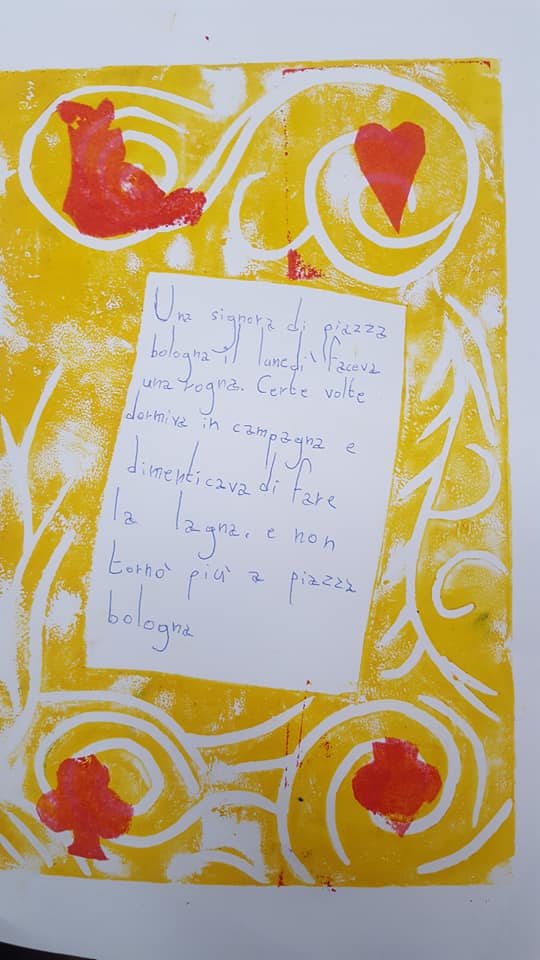 Una signora di piazza
bologna il lunedì faceva
una rogna. Certe volte
dormiva in campagna e
dimenticava di fare
la lagna. e non
tornò più a piazza
bologna